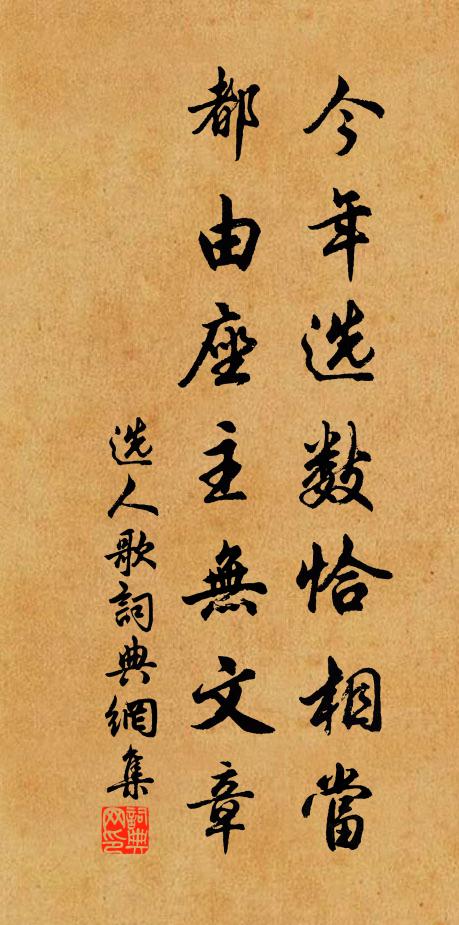 今年选数恰相當
都由座主無文章
选人歌詞典網集
詞典网印